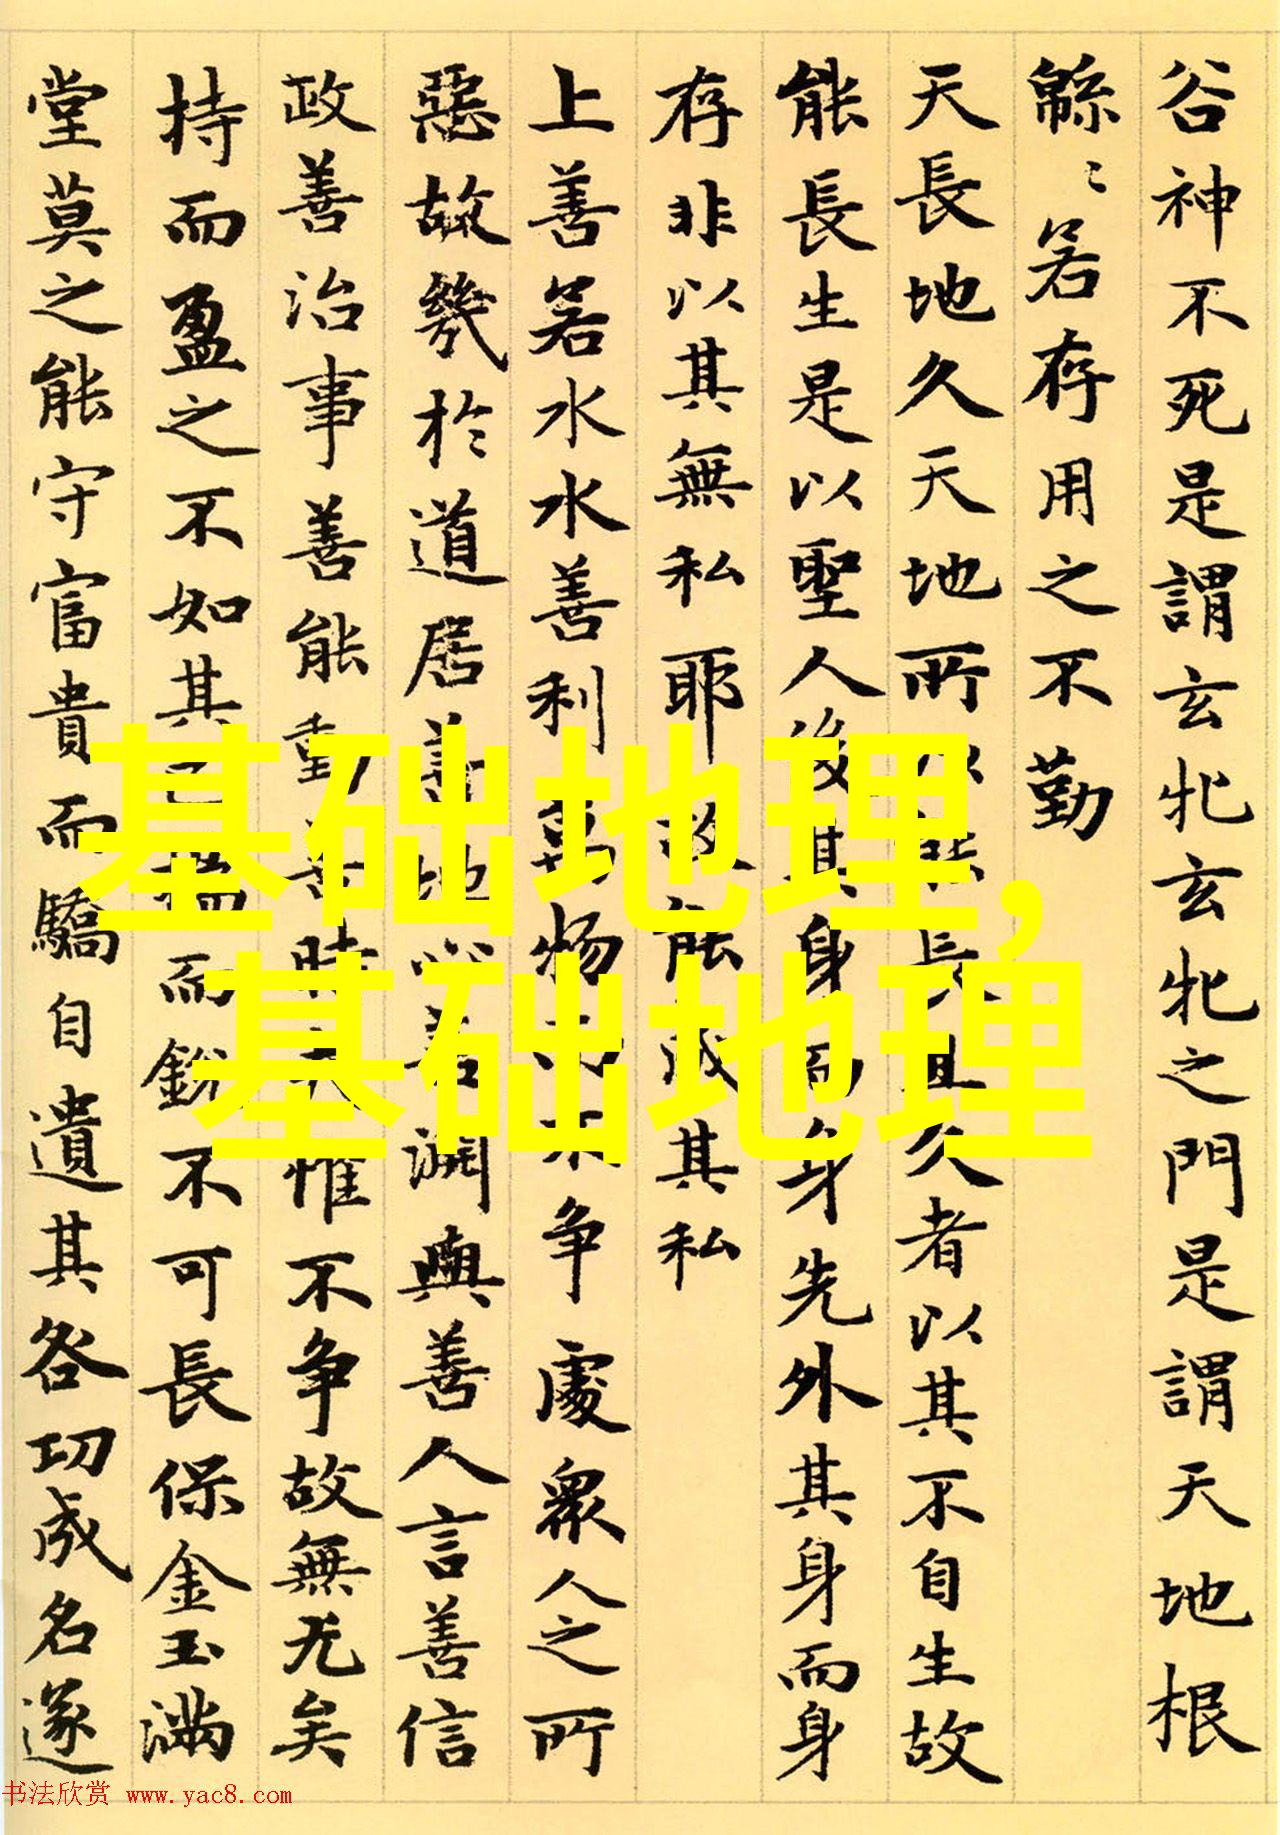 谷神不死是謂玄牝玄牝之門是謂天地根
緜〻若存用之不勤
天長地久天地所以能長且久者以其不自生故
能長生是以聖人後其身而身先外其身而身
存非以其無私耶故能成其私
上善若水水善利萬物而不争處衆人之所
惡故幾於道居善地心善淵與善人言善信
政善治事善能動善時夫惟不争故無尤矣
持而盈之不如其已揣而銳不可長保金玉滿
堂莫之能守富貴而驕自遺其咎功成名遂
基础地理,
基础地理
书法欣赏 www.yac8.com